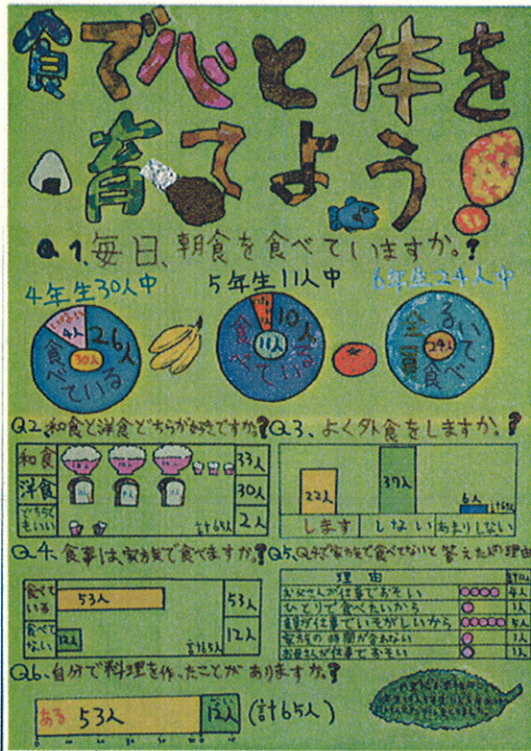 食で心と体を
育てよう!
Q1、毎日、朝食を食べていますか。?
4年生30人中
5年生11人中
6年生24人中
いない
4人
26人
食べている
30人
1人
10人
食べている
11人
全員
食べている
24人
Q2、和食と洋食どちらが好きですか?
和食
33人
洋食
30人
どちらでもいい
2人
計65人
Q3、よく外食をします か。?
22人
37人
6人
計65人
します
しない
あまりしない
Q4、食事は、家族で食べますか。?
食べている
53人
53人
食べてない
12人
計65人
12人
Q5、Q4で家族で食べてないと答えた人の理由
理由
お父さんが仕事でおそい
4人
ひとりで食べたいから
1人
仕事でいそがしいから
5人
家族の時間が合わない
1人
お母さんが仕事でおそい
1人
Q6、自分で料理を作ったことがありますか。?
ある 53人
12人
(計65人)